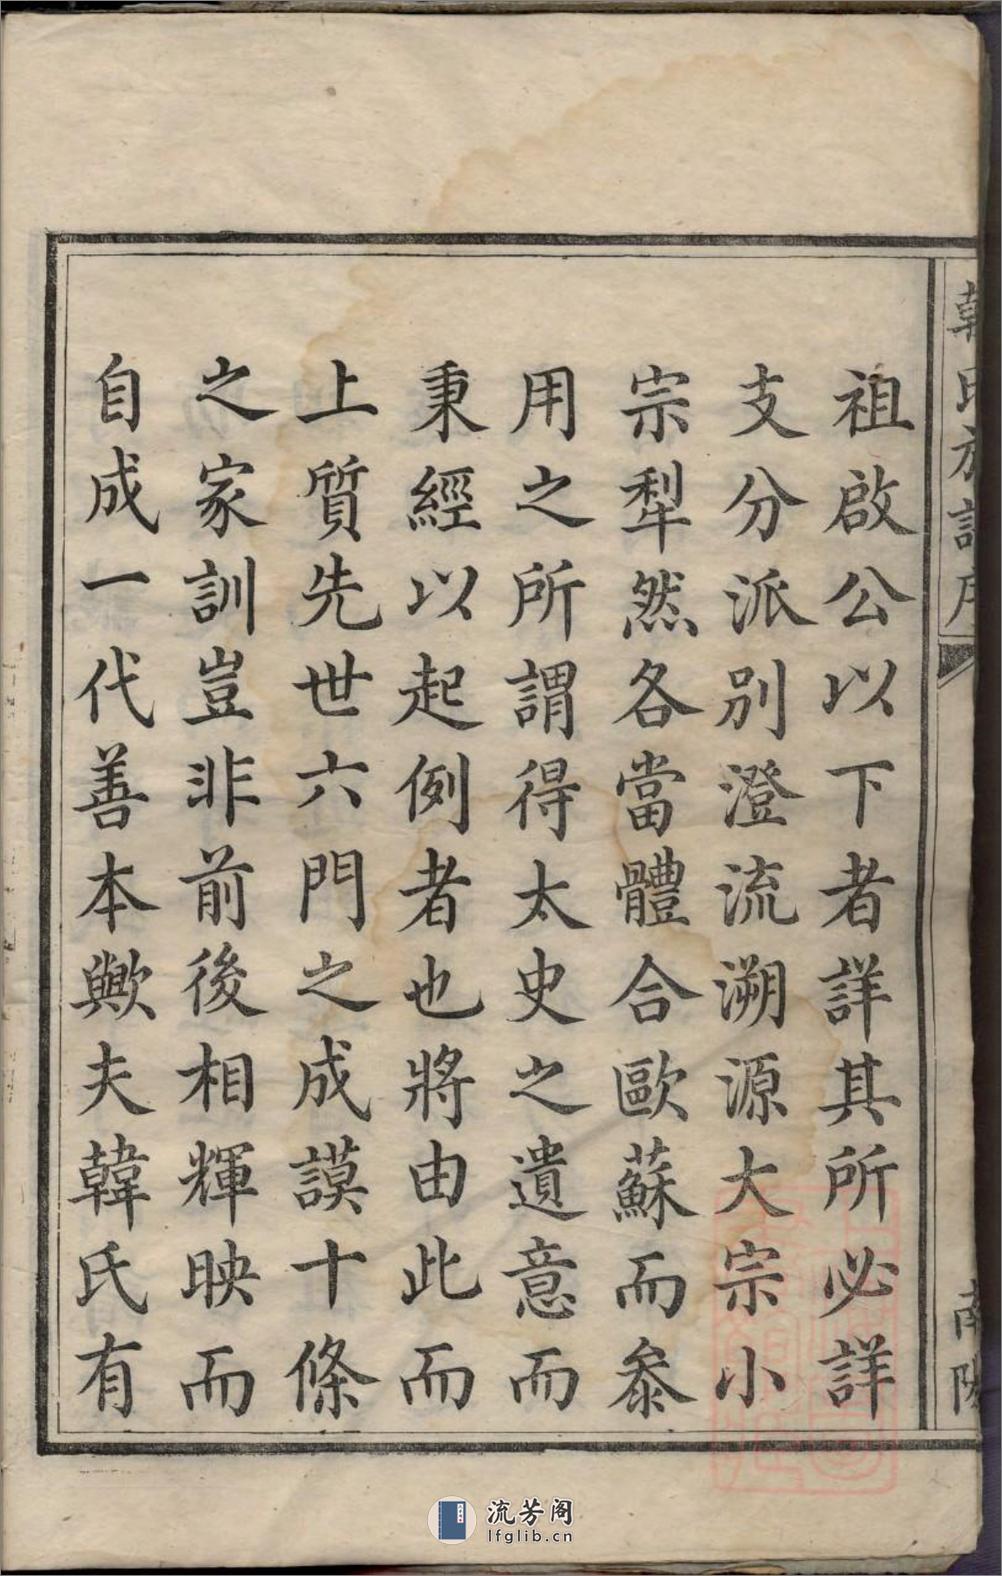 祖啟公以下者詳其所必詳
支分派別澄流溯源大宗小
宗犁然各當體合歐蘇而叅
用之所謂得太史之遺意而
秉經以起例者也將由此而
上質先世六門之成謨十條
之家訓豈非前後相輝映而
自成一代善本歟夫韓氏有
流芳阁
lfglib.cn